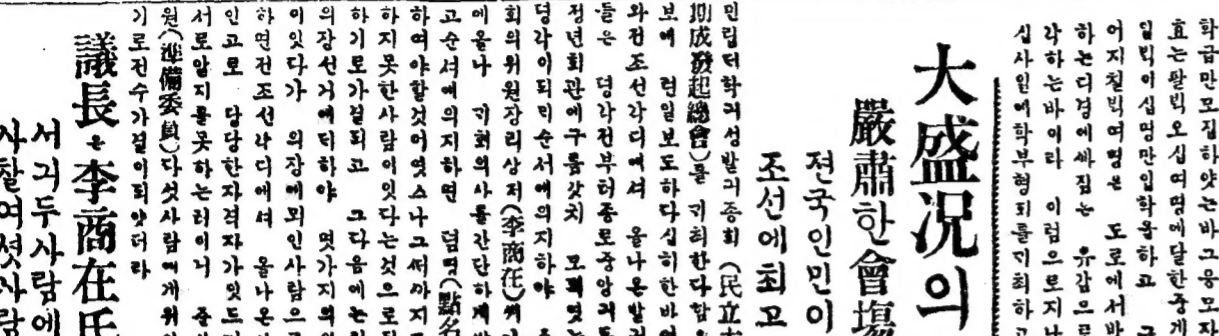 학급만모집하얏는바그응모지
효는팔빅오십여명에달한중개
일빅이십명만입학을하고
어지칠빅여명은 도로에서방
하는디경에 유감으로
각하는바이라 이럼으로지나
십사일에학부형회를기최하고
大盛况의
嚴肅한會塲
전국인민이
조선에최고
민립대학긔성발긔총회 (民立大
期成發起總會)를 기최한다함은
보에 련일보도하다십히한바
와전조선각디에셔 올나온발긔
들은 뎡각전부터종로중앙긔독
청년회관에구름갓치 모혀
뎡각이되미순서에의지하야
회의위원장리상재(李商在)씨
에올나 기회의사를간단하게
고순서에의지하면 뎜명(點名
하여야할것이엿스나그써까지
하지못한사람이잇다는것으로
하기로가결되고 그다음에는
의장선거에대하야 몃가지의
이잇다가 의장에뫼인사람으로
하면전조선각디에셔 올나온
인고로 담당한자격자가잇드
서로알지를못하는터이니 준
원(準備委員)다섯사람에게위
기로전수가결이되얏더라
議長은李商在氏
서긔두사람에
사찰여섯사람